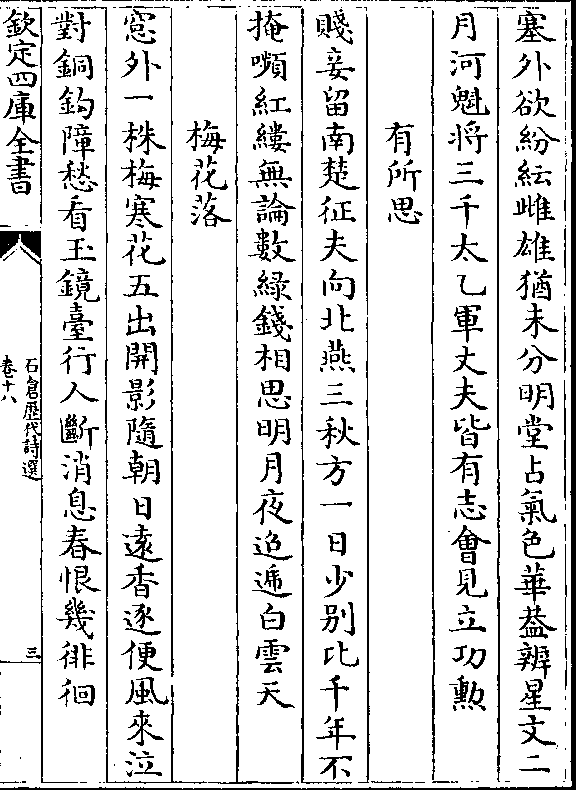 塞外欲紛紜雌雄猶未分明堂占氣色華葢辨星文二
月河魁將三千太乙軍丈夫皆有志會見立功勲
有所思
賤妾留南楚征夫向北燕三秋方一日少别比千年不
掩嚬紅縷無論數綠錢相思明月夜迢遞白雲天
梅花落
窓外一株梅寒花五出開影隨朝日逺香逐便風來泣
對銅鈎障愁看玉鏡臺行人斷消息春恨幾徘徊
欽定四庫全書
石倉歷代詩選
卷十八
三